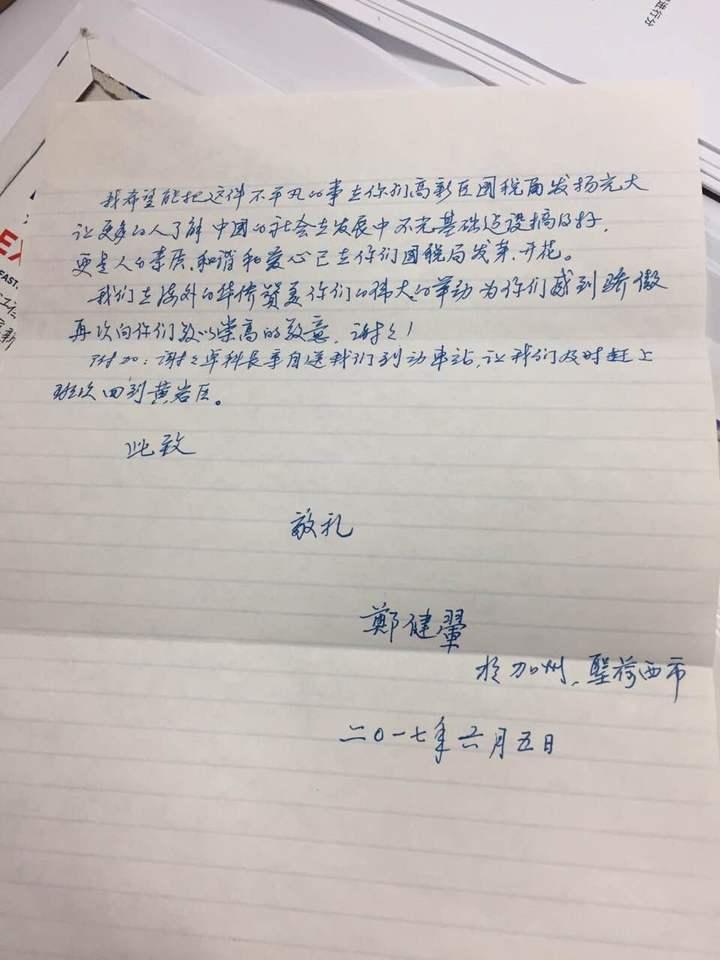 进行分
EX
FAST.
我希望能把这件不平凡的事在你们高新区国税局发扬光大
让更多的人了解中国的社会在发展中不光基础建设搞的好,
更是人的素质、和谐和爱心已在你们国税局发芽、开花。
我们在海外的华侨赞美你们的伟大的举动为你们感到骄傲
再次向你们致以崇高的敬意,谢々!
附加:谢々卓科长亲自送我们到动车站,让我们及时赶上
班次回到黄岩区。
此致
敬礼
鄭健翬
于加州、聖荷西市
二〇一七年六月五日